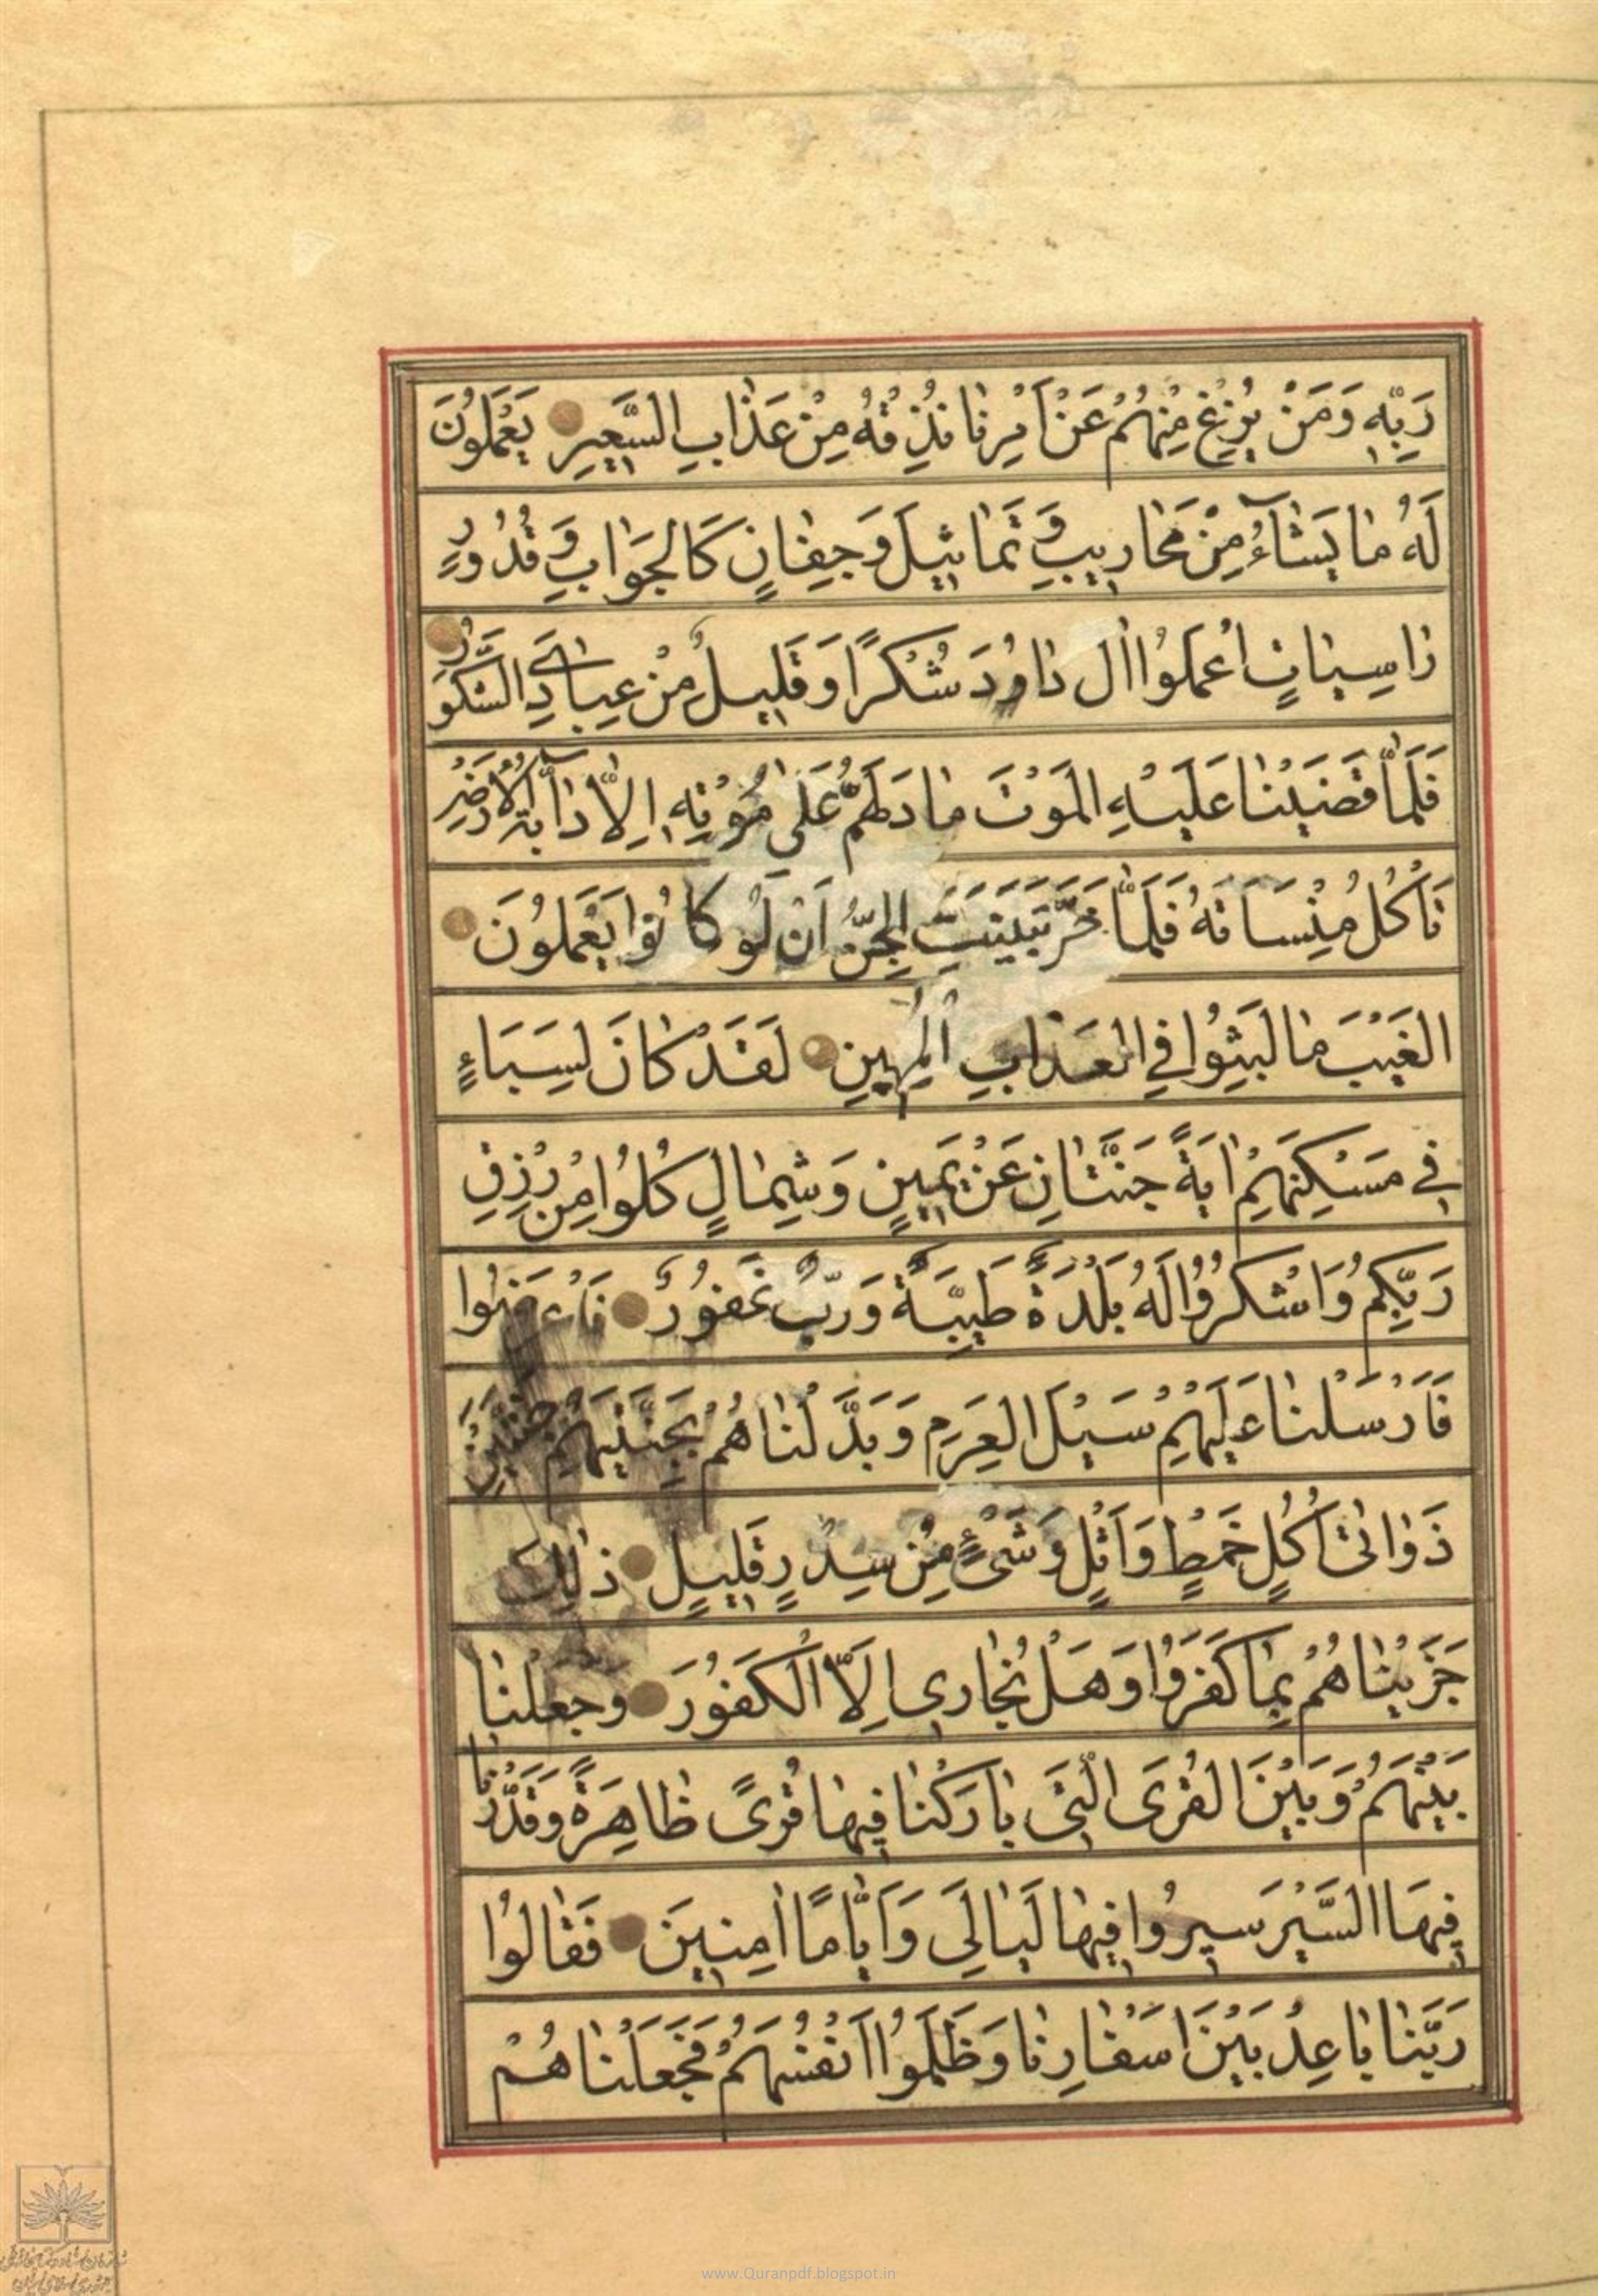 رَبِّهِ وَمَنْ يَزِغْ مِنْهُمْ عَنْ اَمْرِنَا نُذِقْهُ مِنْ عَذَابِ السَّعِيرِ يَعْمَلُونَ
لَهُ مَا يَشَآءُ مِنْ مَحَارِيبَ وَ تَمَاثِيلَ وَجِفَانٍ كَالْجَوَابِ وَ قُدُورٍ
رَاسِيَاتٍ اعْمَلُوا اٰلَ دَاوُدَ شُكْرًا وَقَلِيلٌ مِنْ عِبَادِيَ الشَّكُورُ
فَلَمَّا قَضَيْنَا عَلَيْهِ الْمَوْتَ مَا دَلَّهُمْ عَلٰى مَوْتِهِ اِلَّا دَآبَّةُ الْاَرْضِ
تَأْكُلُ مِنْسَاَتَهُ فَلَمَّا خَرَّ تَبَيَّنَتِ الْجِنُّ اَنْ لَوْ كَانُوا يَعْمَلُونَ
الْغَيْبَ مَا لَبِثُوا فِي الْعَذَابِ الْمُهِينِ لَقَدْ كَانَ لِسَبَاءٍ
فِي مَسْكَنِهِمْ اٰيَةٌ جَنَّتَانِ عَنْ يَمِينٍ وَشِمَالٍ كُلُوا مِنْ رِزْقِ
رَبِّكُمْ وَاشْكُرُوا لَهُ بَلْدَةٌ طَيِّبَةٌ وَرَبٌّ غَفُورٌ فَاَعْرَضُوا
فَاَرْسَلْنَا عَلَيْهِمْ سَيْلَ الْعَرِمِ وَبَدَّلْنَاهُمْ بِجَنَّتَيْهِمْ جَنَّتَيْنِ
ذَوَاتَىْ اُكُلٍ خَمْطٍ وَاَثْلٍ وَشَىْءٍ مِنْ سِدْرٍ قَلِيلٍ ذٰلِكَ
جَزَيْنَاهُمْ بِمَا كَفَرُوا وَهَلْ نُجَازِي اِلَّا الْكَفُورَ وَجَعَلْنَا
بَيْنَهُمْ وَبَيْنَ الْقُرَى الَّتِي بَارَكْنَا فِيهَا قُرىً ظَاهِرَةً وَقَدَّرْنَا
فِيهَا السَّيْرَ سِيرُوا فِيهَا لَيَالِيَ وَاَيَّامًا اٰمِنِينَ فَقَالُوا
رَبَّنَا بَاعِدْ بَيْنَ اَسْفَارِنَا وَظَلَمُوا اَنْفُسَهُمْ فَجَعَلْنَاهُمْ
www.Quranpdf.blogspot.in